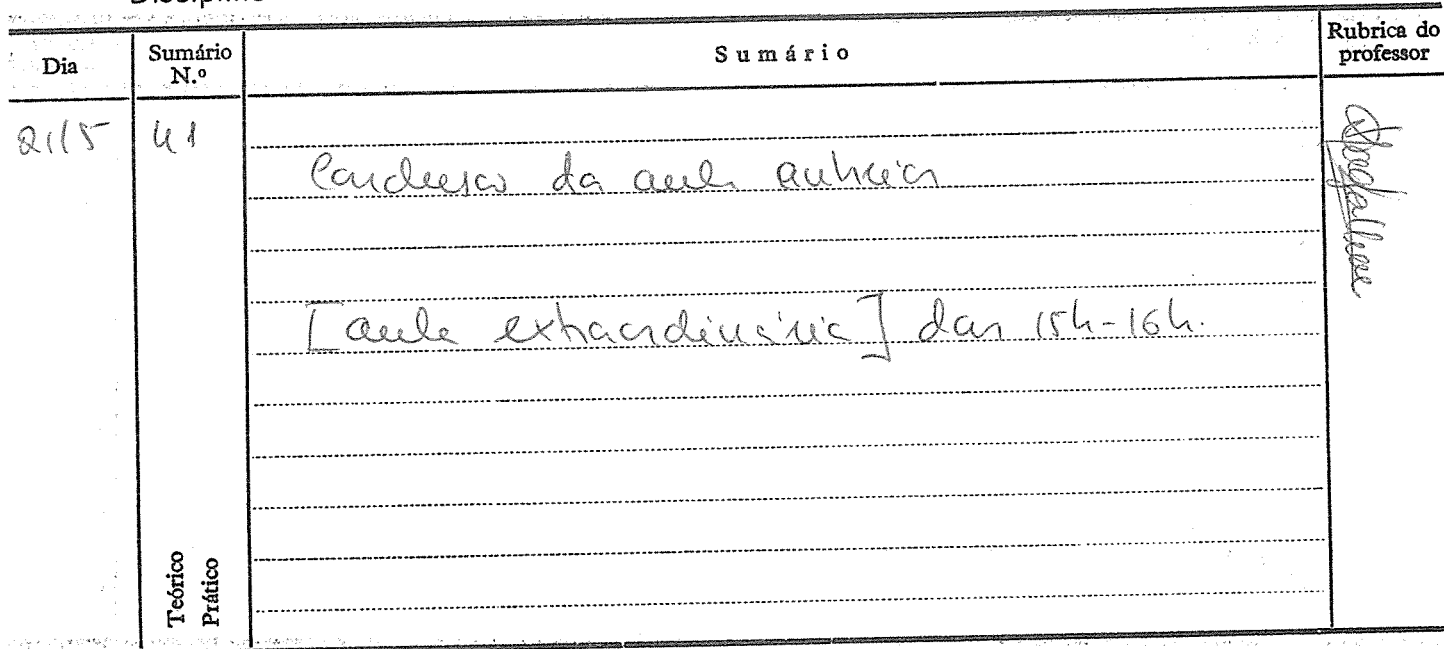 Dia
Sumário N.º
Sumário
Rubrica do professor
21/5
41
Conclusão da aula anterior
[aula extraordinária] das 15h-16h.
Teórico
Prático